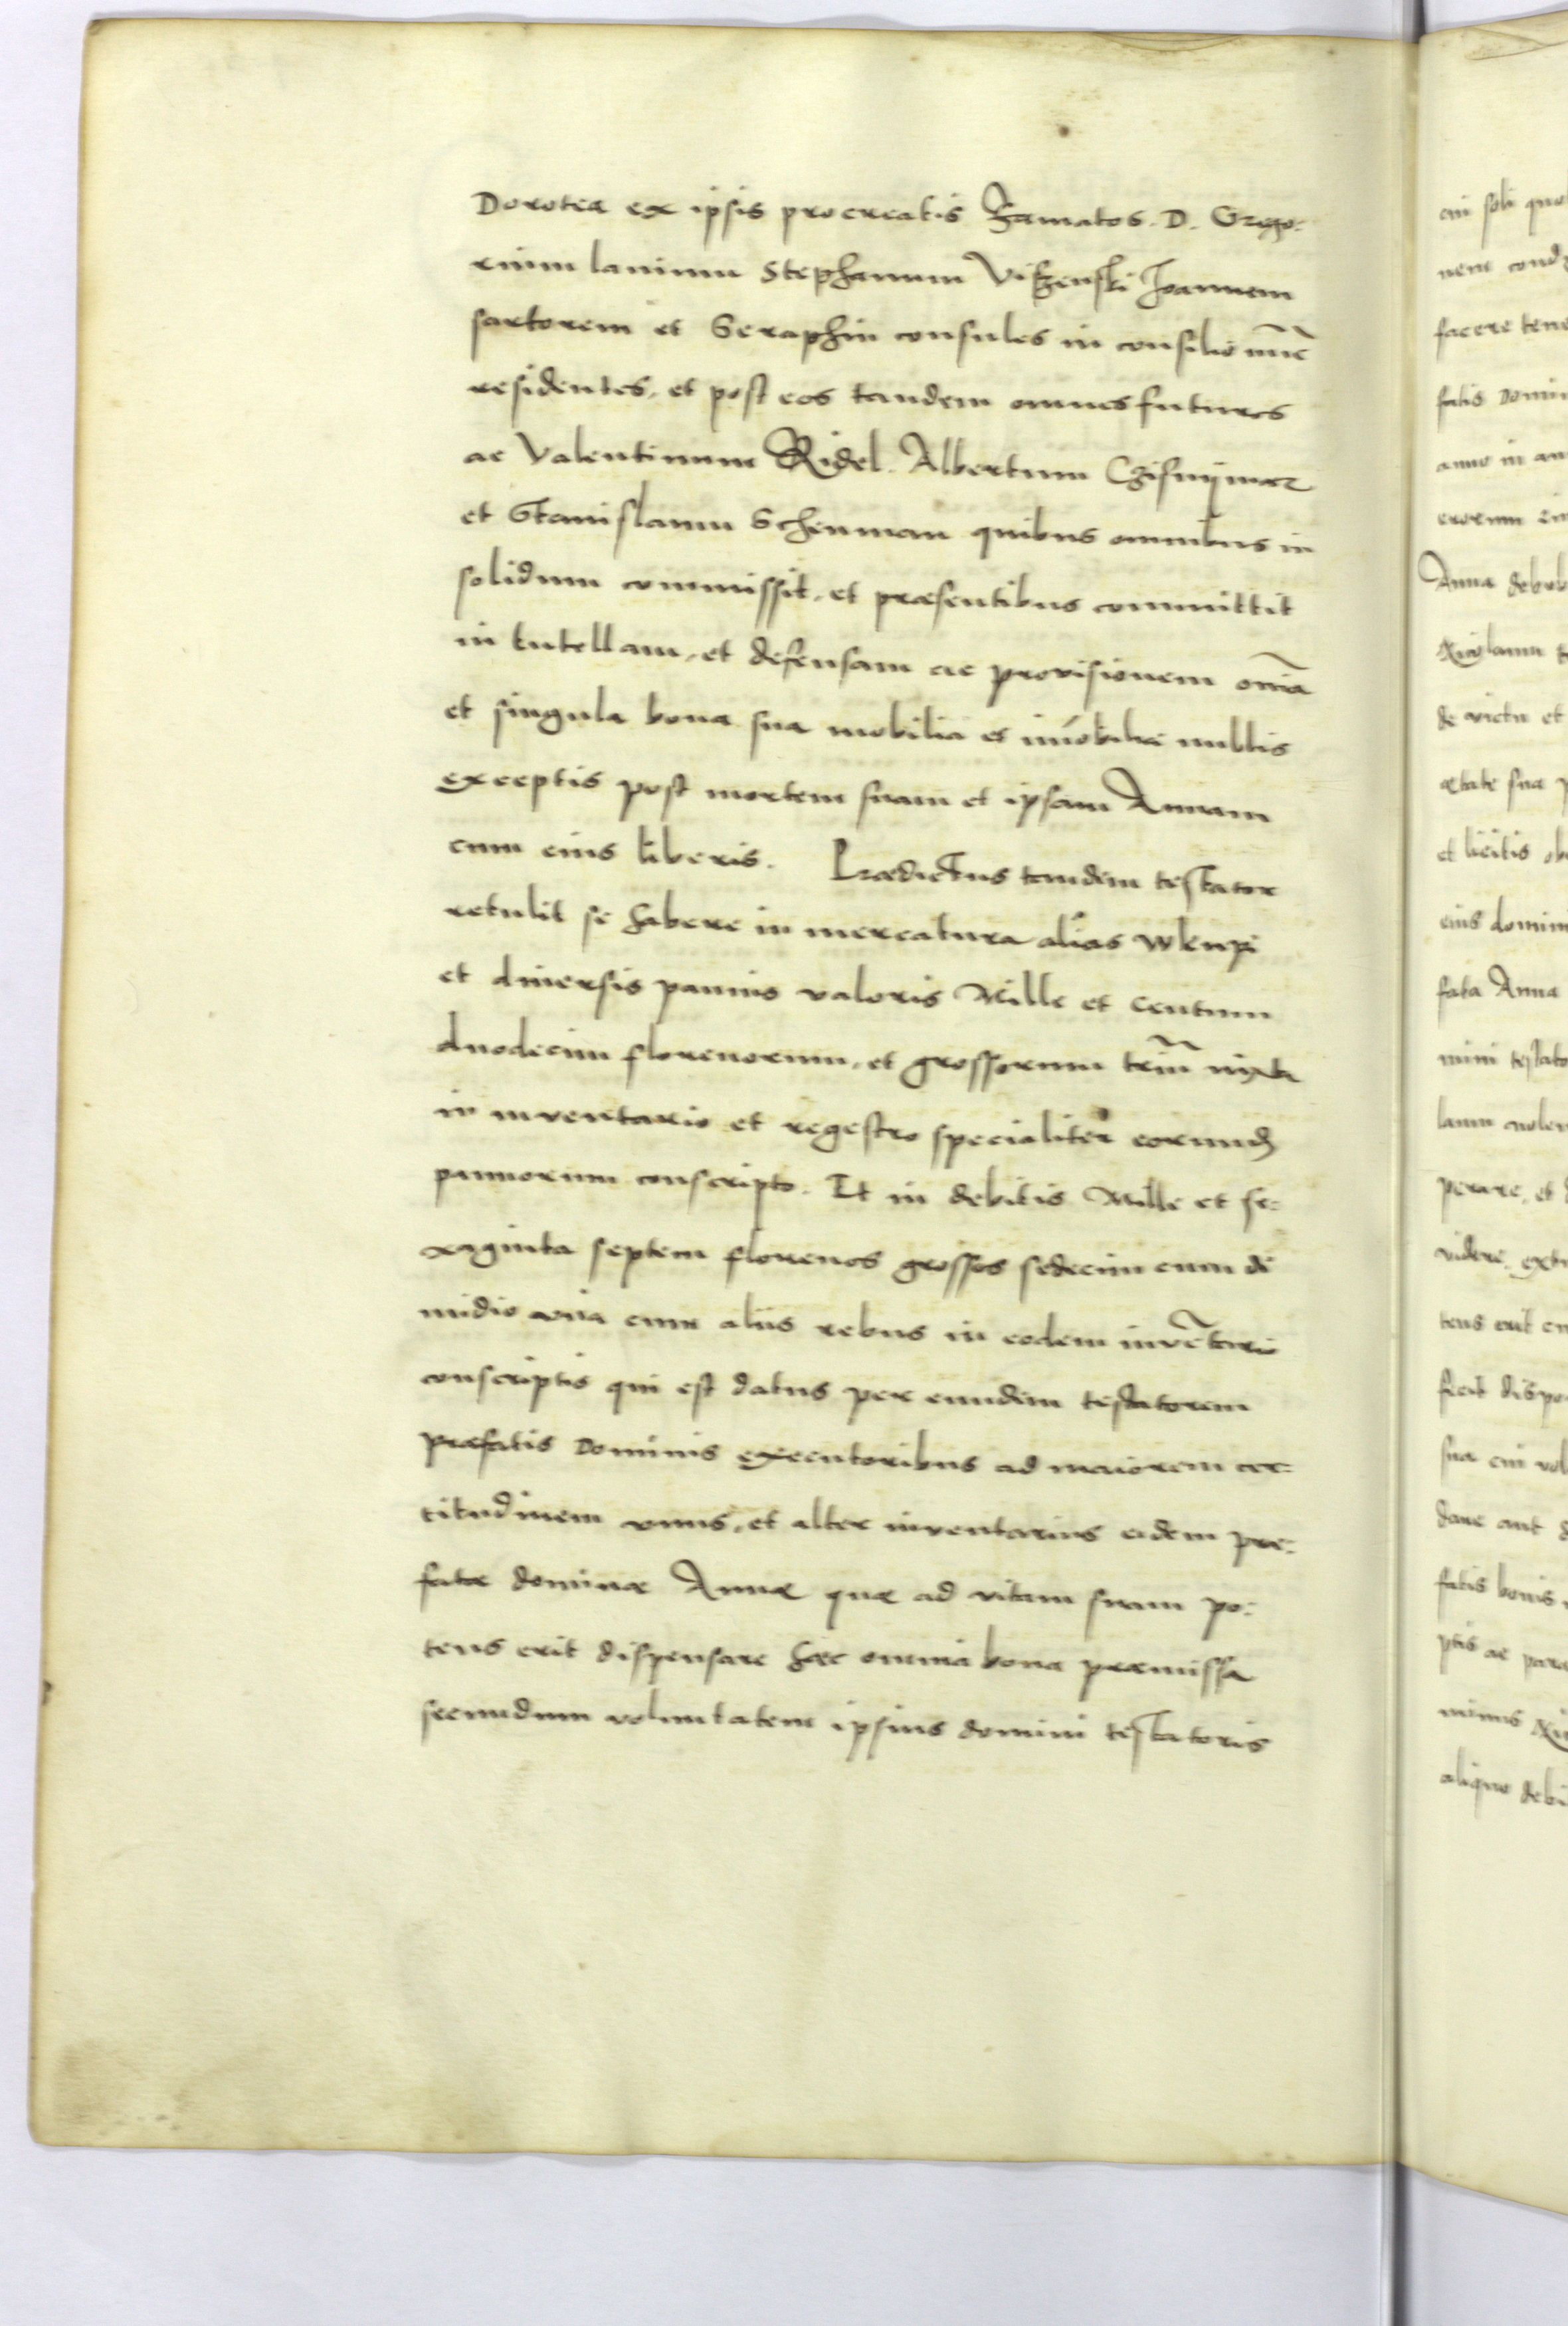 Dorotea ex ipsis procreatis Famatos. D. Grego:
rium lanium Stephanum Joannem
sartorem et Seraphin consules in consilio nūc
residentes, et post eos tandem omnes futuros
ac Valentinum Ridel. Albertum
et Stanislaum Schenman quibus omnibus in
solidum commissit, et præsentibus committit
in tutellam, et defensam ac provisionem om̄ia
et singula bona sua mobilia et im̄obilia nullis
exceptis post mortem suam et ipsam Annam
cum eius liberis. Prædictus tandem testator
retulit se habere in mercatura alias wkupi
et diversis pannis valoris Mille et Centum
duodecim florenorum, et grossorum triū iuxta
in inventario et regestro specialiter eorund
pannorum conscripto. Et in debitis Mille et se:
xaginta septem florenos grossos sedecim cum di
midio una cum aliis rebus in eodem invētario
conscriptis qui est datus per eundem testatorem
præfatis Dominis executoribus ad maiorem cer:
titudinem unus, et alter inventarius eidem præ:
fatæ dominæ Annæ quæ ad vitam suam po:
tens erit dispensare hæc omnia bona præmissa
secundum voluntatem ipsius domini testatoris
cui soli
nem
facere
fatis
anno in
erorum
Anna
de victu et
ætate sua
et licitis
eius
fata Anna
mini
perare, et
videre,
tens erit
fecit
sua cui
dare aut
fatis bonis
ptis ac
aliquo